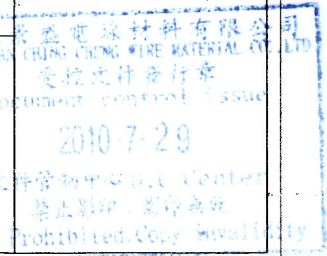 電線材料有限公司
CHING CHENG WIRE MATERIAL CO.,LTD
文件發行章
ocument control issue
2010-7-29
文件管制中心D.C Center
禁止影印,影印無效
Prohibited.Copy Invalidity